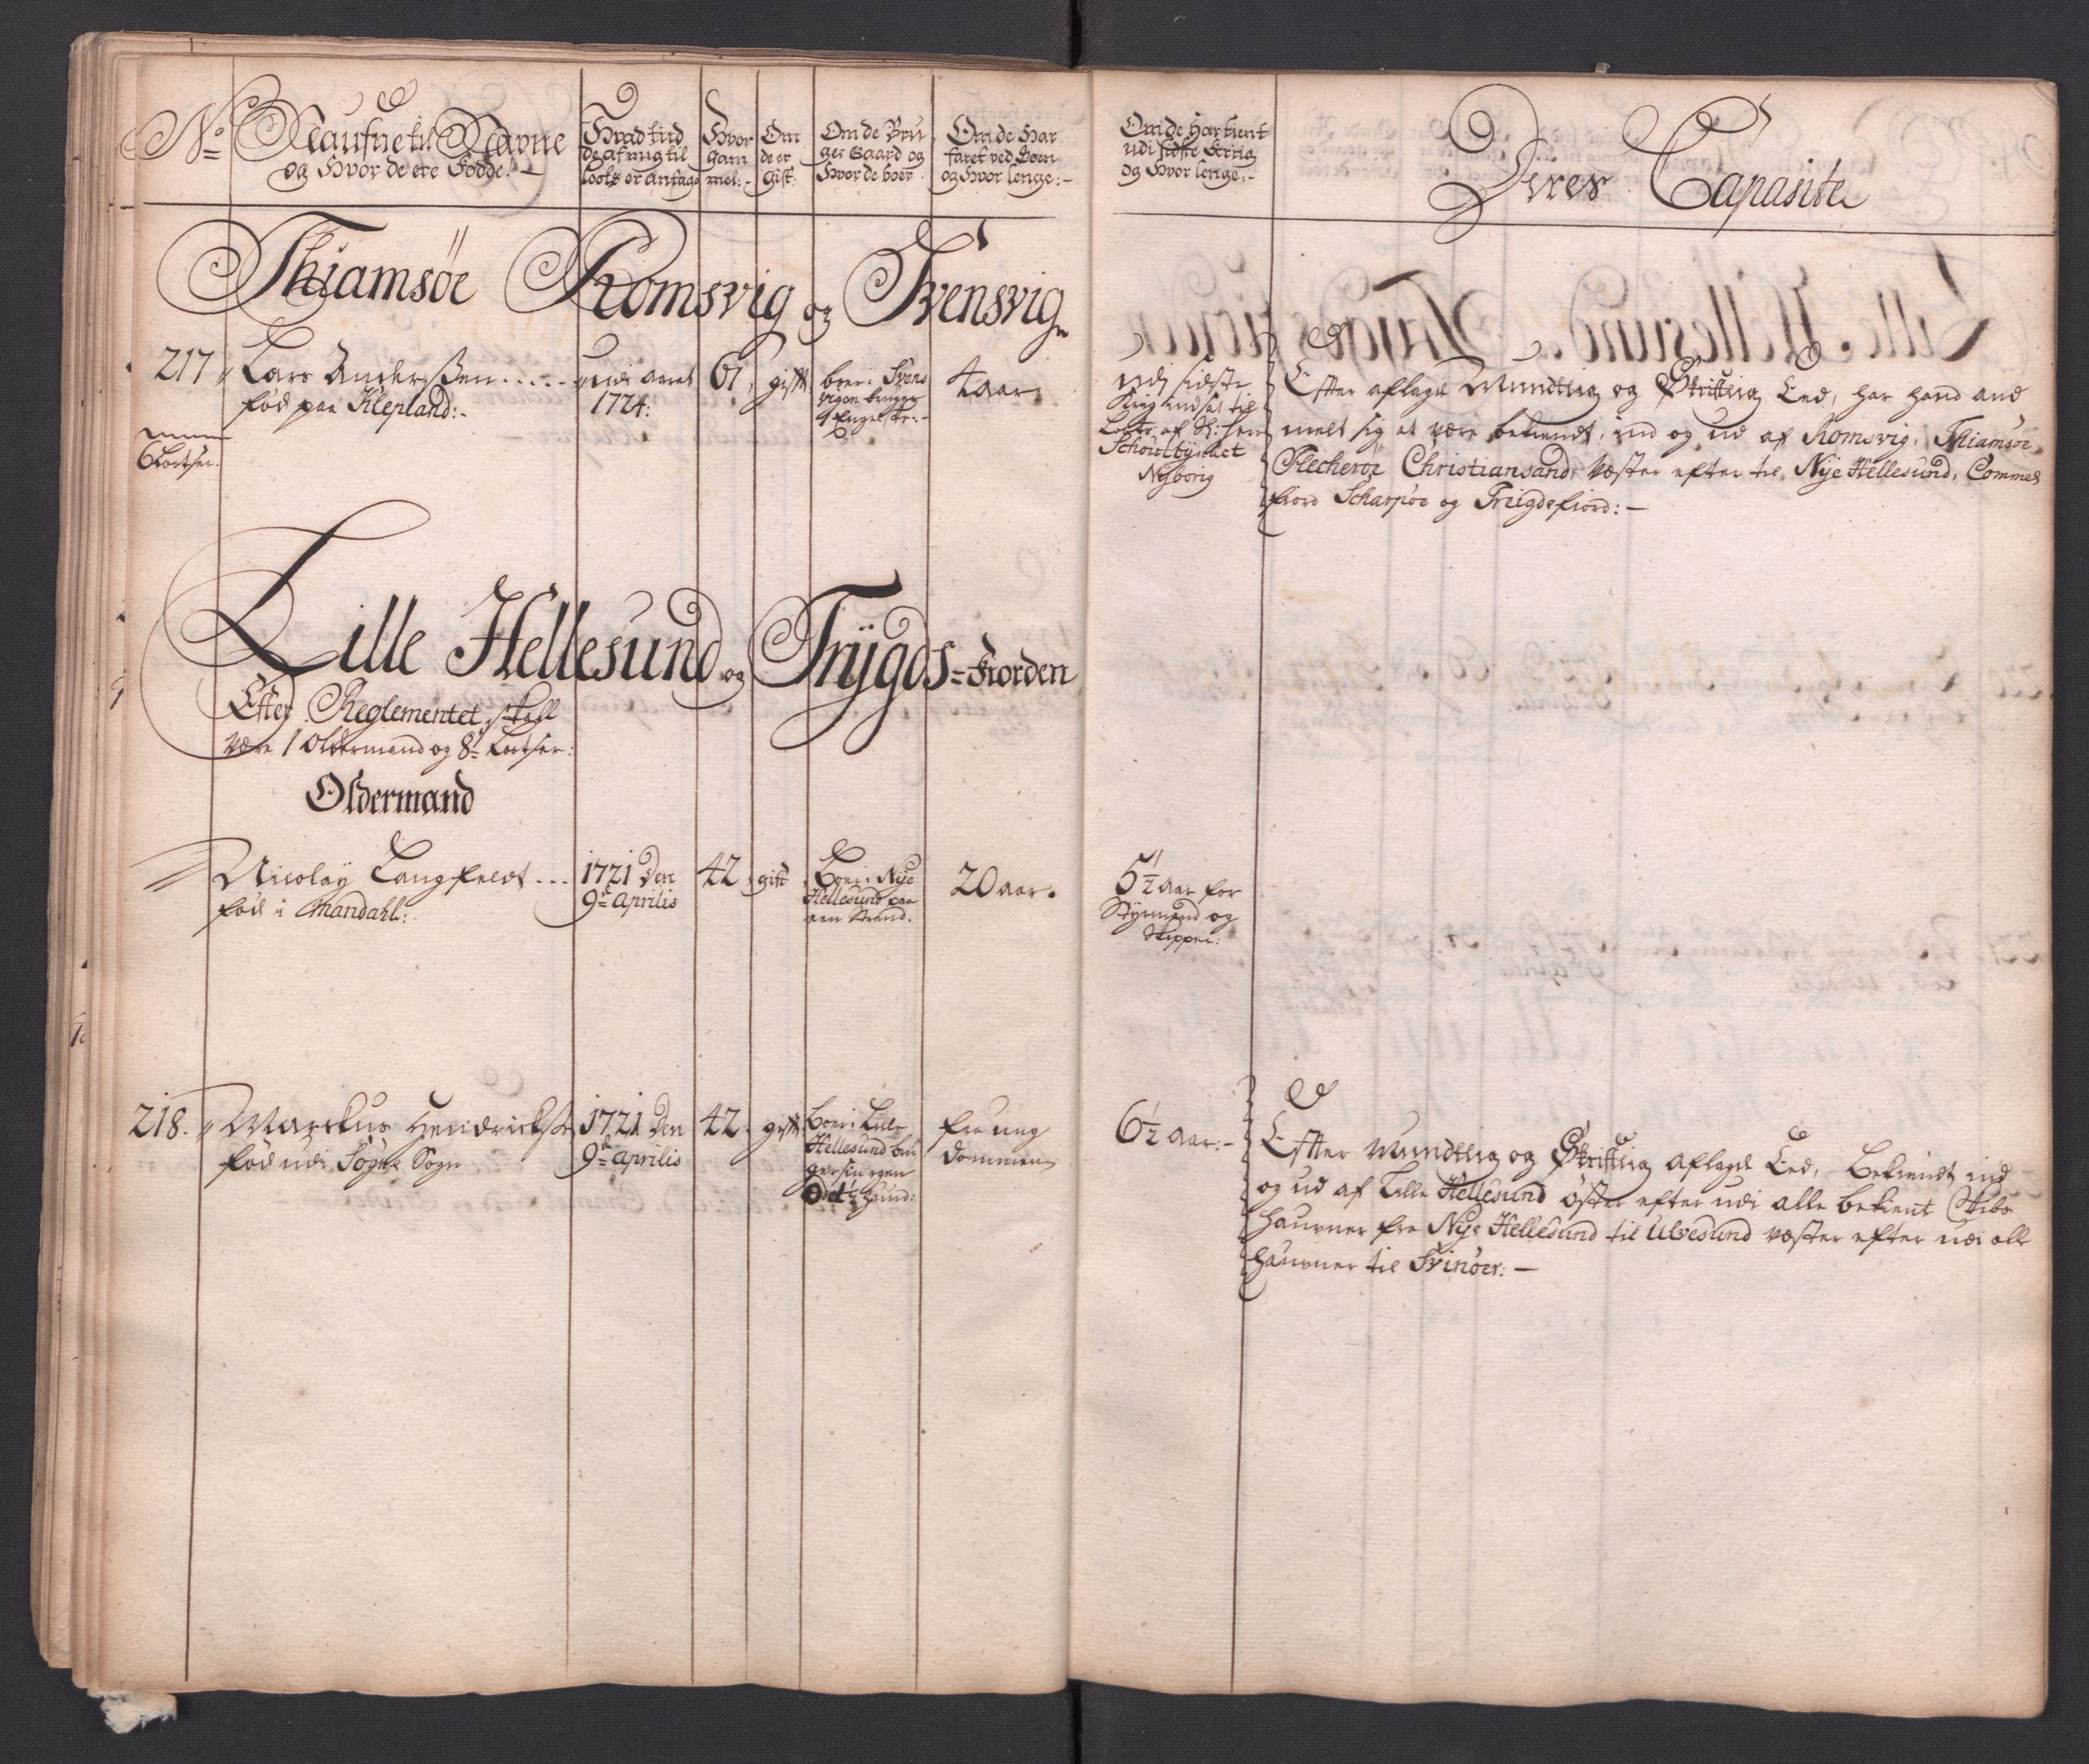 No
Naufnetil Navne
og Hvor de ere Fødde:-
Hvad tiid
de af mig til
Loots er antage
Hvor
gam
mel:-
Om
de er
gift:
Om de Bru
ger Gaard og
Hvor de boer
Om de Har
faret ved Søen
og Hvor lenge:-
Om de Har tient
udi sidste Kriig
og Hvor lenge:-
Deres Capasite
Thiamsöe Romsvig og Svensvig
217
Lars Anderßen.....
fød paa Klepland:-
6 Lootser:
udi aaret
1724:
61
gift
boer i Svens
vigen bruger
1 Engelske:-
4 aar
udi sidste
Krig indsat til
Loots, af
Schoutbÿnacht
Nÿborig
Efter aflagde Mundtlig og Skriftlig Eed, har hand and
meldt sig at være bekiendt, ind og ud af Romsvig, Thiamsöe
Flecheröe Christiansand, Væster efter til Nÿe Hellesund, Commes
fiord Scharpöe og Treigdefiord:-
Lille Hellesund og Trÿgds=Fiorden
Efter Reglementet skall
være 1 Oldermand og 8te Lootser:
Oldermand
Nicolaÿ Langfeldt ...
fød i Mandahl:
1721 den
9de Aprilis
42
gift
Boer i Nÿe
Hellesund paa
een Strand.
20 aar.
5½ aar for
Stÿrmand og
Skipper:
218.
Marckus Hendrickß
fød udi Sögne Sogn
1721 den
9de Aprilis
42
gift
Boer i Lille
Hellesund bru
ger sin egen
fra ung
dommen
6½ aar:-
Efter Mundtlig og Skriftlig aflagde Eed, Bekiendt ind
og ud af Lille Hellesund öster efter udi alle bekient Skibs
Haufner fra Nÿe Hellesund til Ulvesund væster efter udi alle
haufner til Svinöer:-